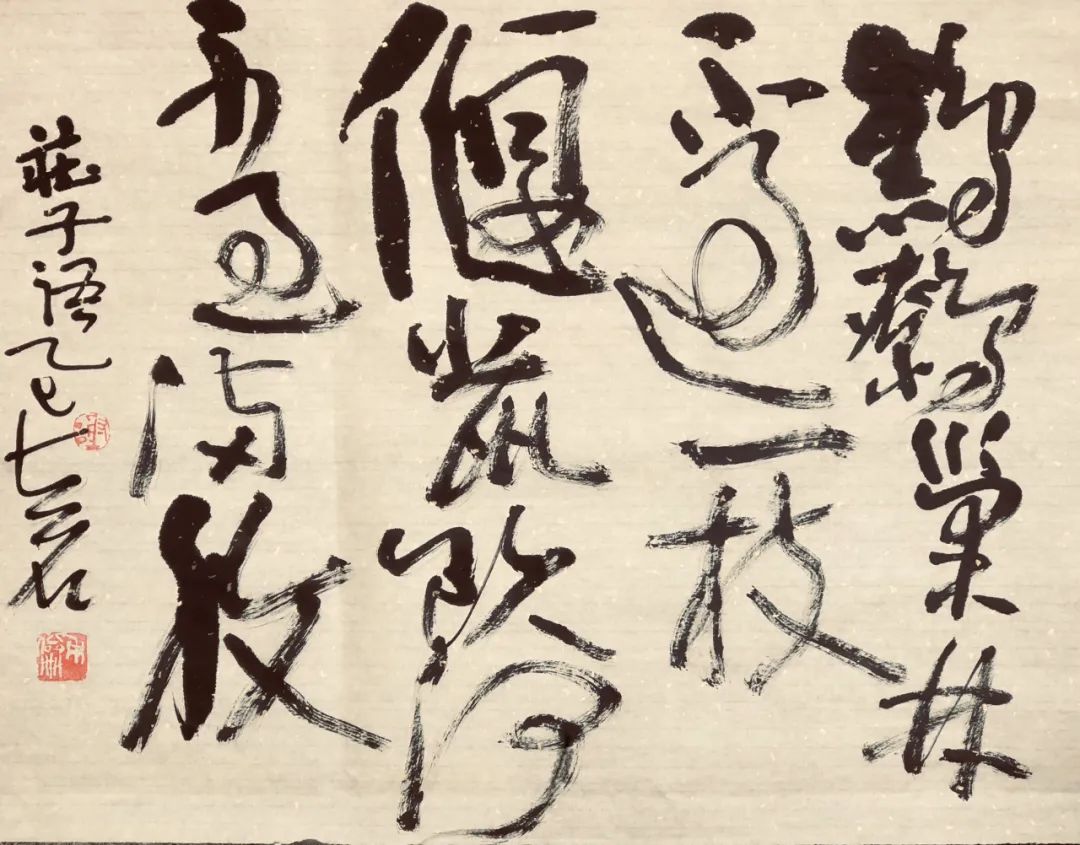 鷦鷯巢林
不過一枝
偃鼠飲河
不過滿腹
莊子語乙巳